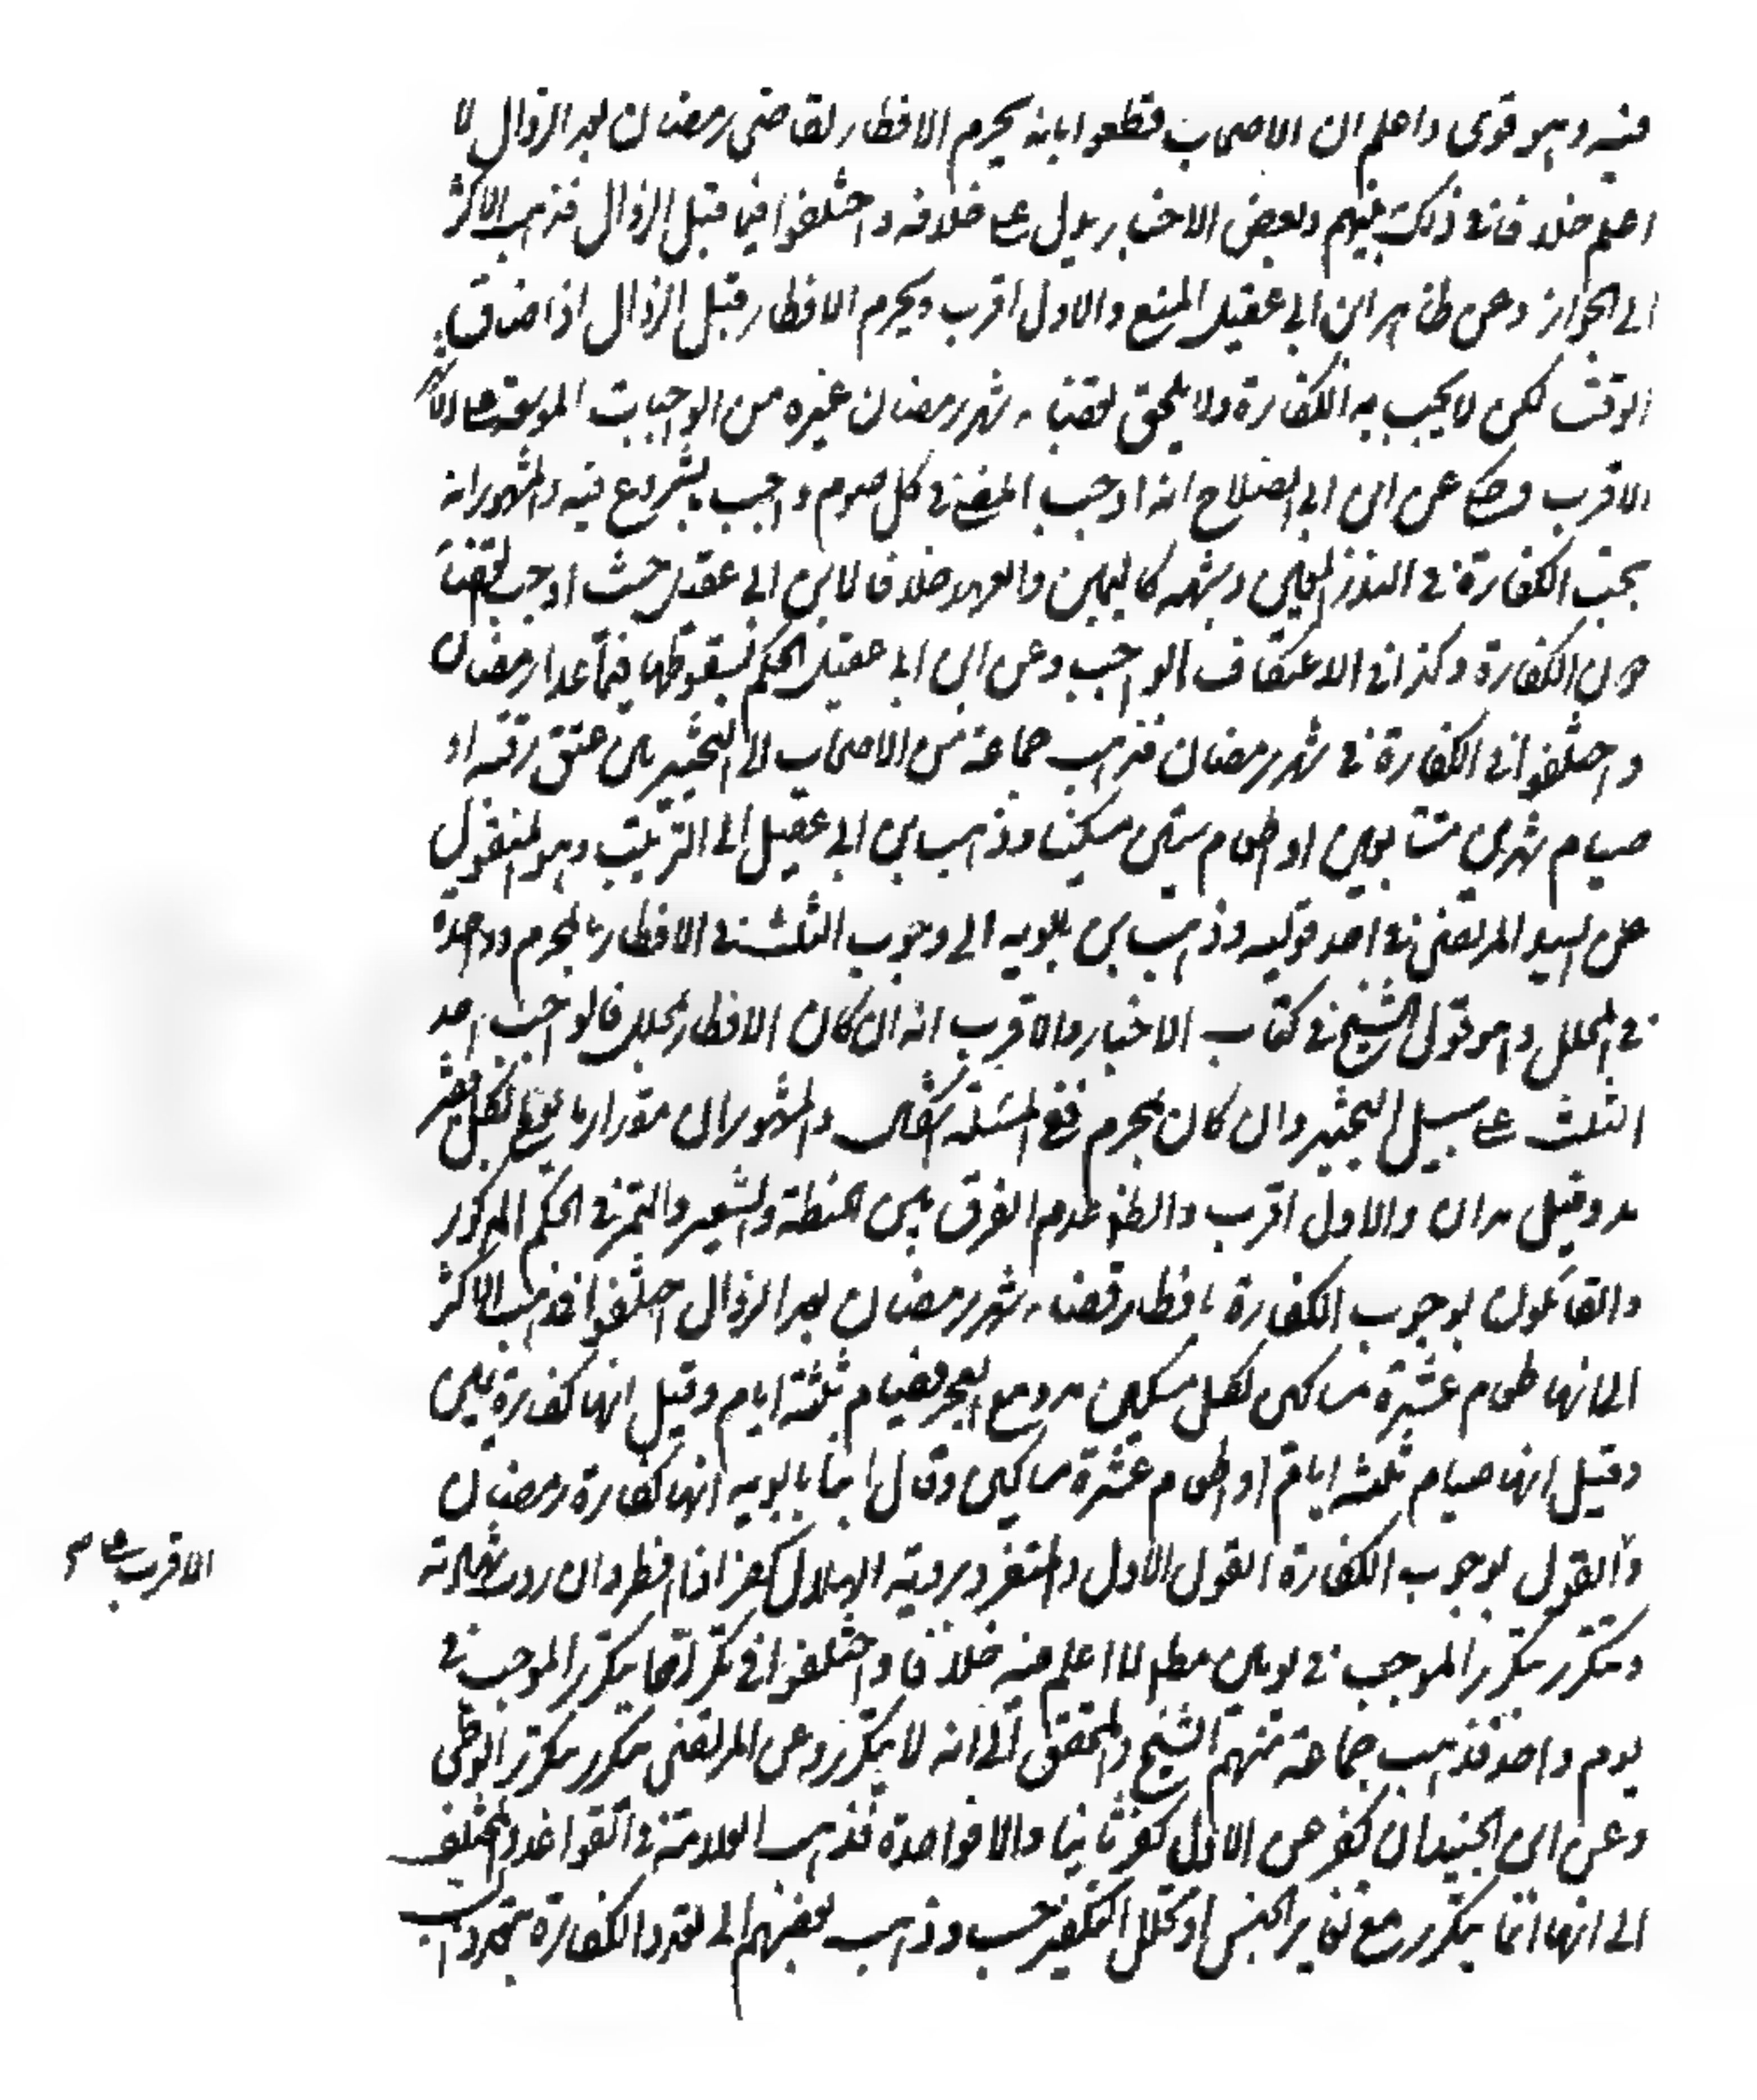 فيه وهو قوى واعلم ان الاصحاب قطعوا بانه يحرم الافطار لقاضى رمضان بعد الزوال لا
اعلم خلافا فى ذلك بينهم وبعض الاخبار يدل على خلافه واختلفوا فيما قبل الزوال فذهب الاكثر
الى الجواز وعن ظاهر ابن ابى عقيل المنع والاول اقرب ويحرم الافطار قبل الزوال اذا ضاق
الوقت لكن لا يجب به الكفارة ولا يلحق بقضاء شهر رمضان غيره من الواجبات الموسعة على الاشهر
الاقرب وحكى عن ابن ابى الصلاح انه اوجب المضى فى كل صوم واجب بشرع فيه والمشهور انه
يجب الكفارة فى النذر المعين وشبهه كاليمين والعهد خلافا لابن ابى عقيل حيث اوجب القضاء
دون الكفارة وكذا فى الاعتكاف الواجب وعن ابن ابى عقيل الحكم بسقوطها فيما عدا رمضان
واختلفوا فى الكفارة فى شهر رمضان فذهب جماعة من الاصحاب الى التخيير بين عتق رقبة او
صيام شهرين متتابعين او اطعام ستين مسكينا وذهب بن ابى عقيل الى الترتيب وهو المنقول
عن السيد المرتضى فى احد قوليه وذهب بن بابويه الى وجوب الثلث فى الافطار بالمحرم وواحدة
فى المحلل وهو قول الشيخ فى كتاب الاخبار والاقرب انه ان كان الافطار بمحلل فالواجب احد
الثلث على سبيل التخيير وان كان بمحرم ففى المسئلة اشكال والمشهور ان مقدار ما يعطى لكل فقير
مد وقيل مدان والاول اقرب والظ عدم الفرق بين الحنطة والشعير والتمر فى الحكم المذكور
والقائلون بوجوب الكفارة بافطار قضاء شهر رمضان بعد الزوال اختلفوا فذهب الاكثر
الى انها طعام عشرة مساكين لكل مسكين مد ومع العجز فصيام ثلثة ايام وقيل انها كفارة يمين
وقيل انها صيام ثلثه ايام او اطعام عشرة مساكين وقال ابنا بابويه انها كفارة رمضان
والقول بوجوب الكفارة القول الاول والمتفرد برؤية الهلال يكفر اذا افطر وان ردت شهادته
وتتكرر بتكرر الموجب فى يومين مط لا اعلم فيه خلافا واختلفوا فى تكررها بتكرر الموجب فى
يوم واحد فذهب جماعة منهم الشيخ والمحقق الى انه لا يتكرر وعن المرتضى يتكرر بتكرر الوطى
وعن ابن الجنيد ان كفر عن الاول كفر ثانيا والا فواحدة فذهب العلامة فى القواعد والمختلف
الى انها انما يتكرر مع تغاير الجنس او تخلل التكفير حسب وذهب بعضهم الى تعدد الكفارة بتعدد
الاقرب على